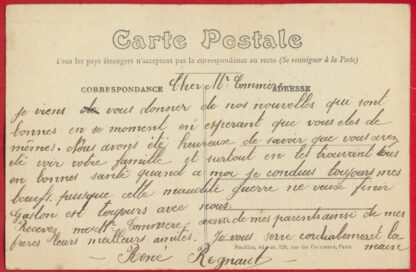 Carte Postale
Tous les pays étrangers n'acceptent pas la correspondance au recto (Se renseigner à la Poste)
CORRESPONDANCE
ADRESSE
Cher Mr Commère
je viens de vous donner de nos nouvelles qui sont
bonnes en se moment en esperant que vous etes de
mêmes. Nous avons été heureuse de savoir que vous avez
été voir votre famille et surtout en les trouvant tous
en bonnes santé quand a moi je conduis toujours mes
boeufs. puisque cette maudite guerre ne veux finir
Gaston est toujours avec nous.
Recevez Mr Commère, de mes parents ainsi de mes
frères leurs meilleurs amitiés. Je vous serre cordialement la
main
René Regnaut